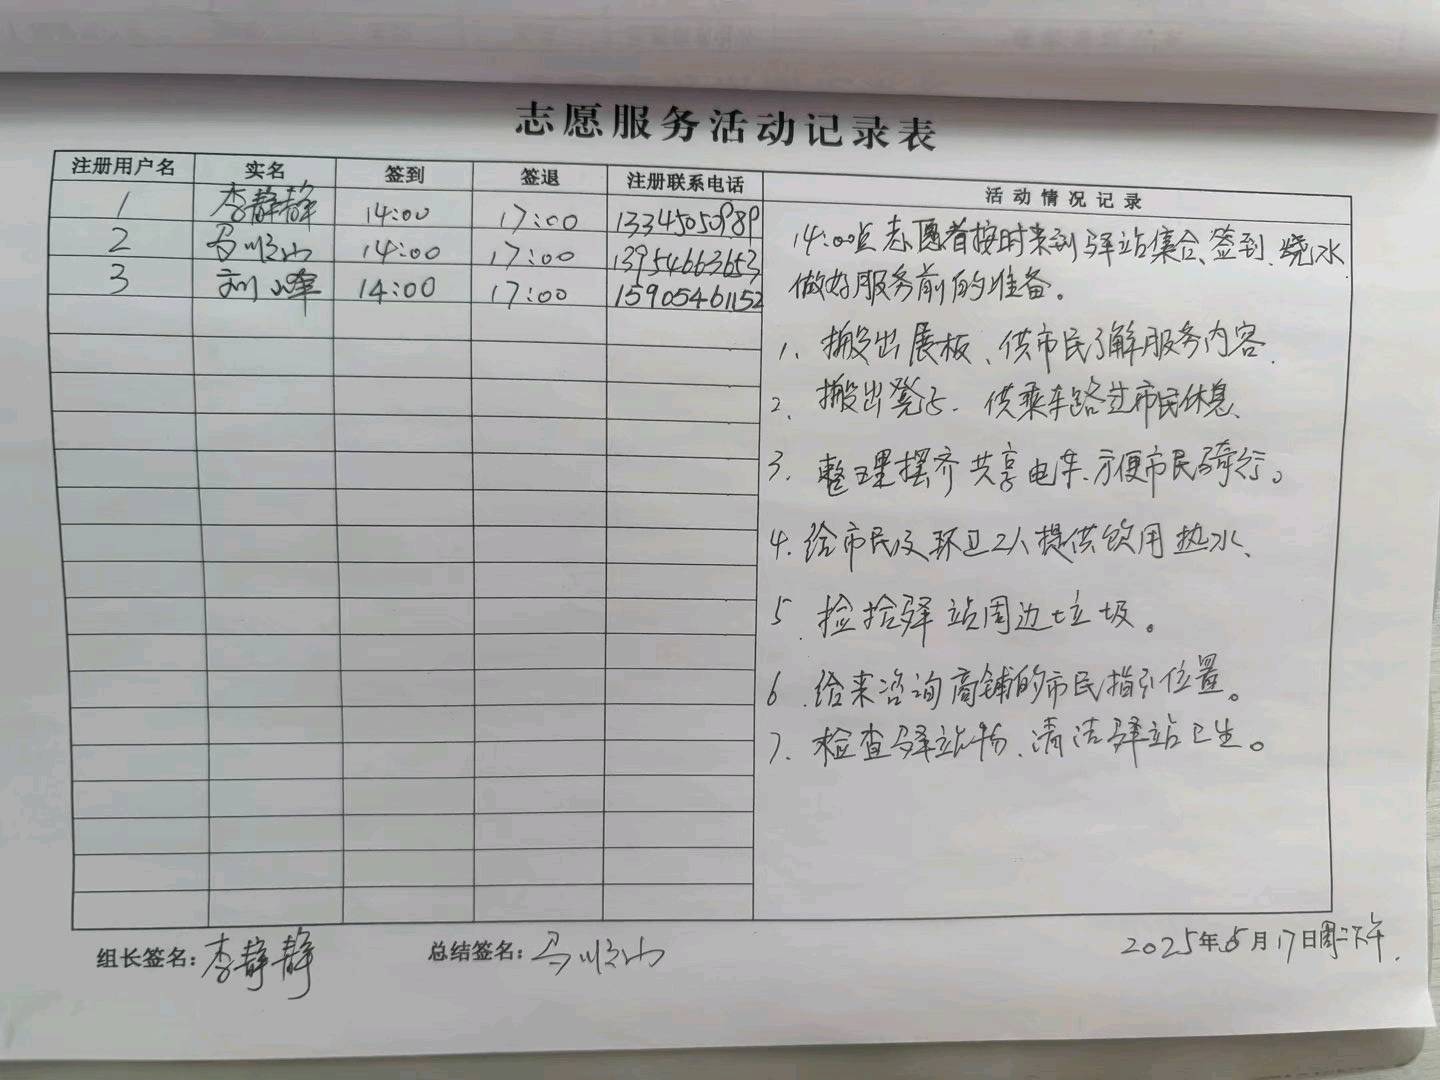 志愿服务活动记录表
注册用户名 实名 签到 签退 注册联系电话 活动情况记录
1 李静静 14:00 17:00 13345050989
2 马顺山 14:00 17:00 13954663653
3 刘峰 14:00 17:00 15905461152
14:00点志愿者按时来到驿站集合、签到、烧水
做好服务前的准备。
1、搬出展板、供市民了解服务内容.
2、搬出凳子、供乘车路过市民休息、
3、整理摆齐共享电车、方便市民骑行。
4.给市民及环卫工人提供饮用热水、
5、捡拾驿站周边垃圾。
6、给来咨询商铺的市民指引位置。
7、检查驿站物、清洁驿站卫生。
组长签名:李静静 总结签名:马顺山 2025年6月17日周二下午.